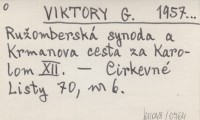 o
VIKTORY G. 1957...
Ružomberská synoda a
Krmanova cesta za Karo-
lom XII. — Cirkevné
Listy 70, č 6.